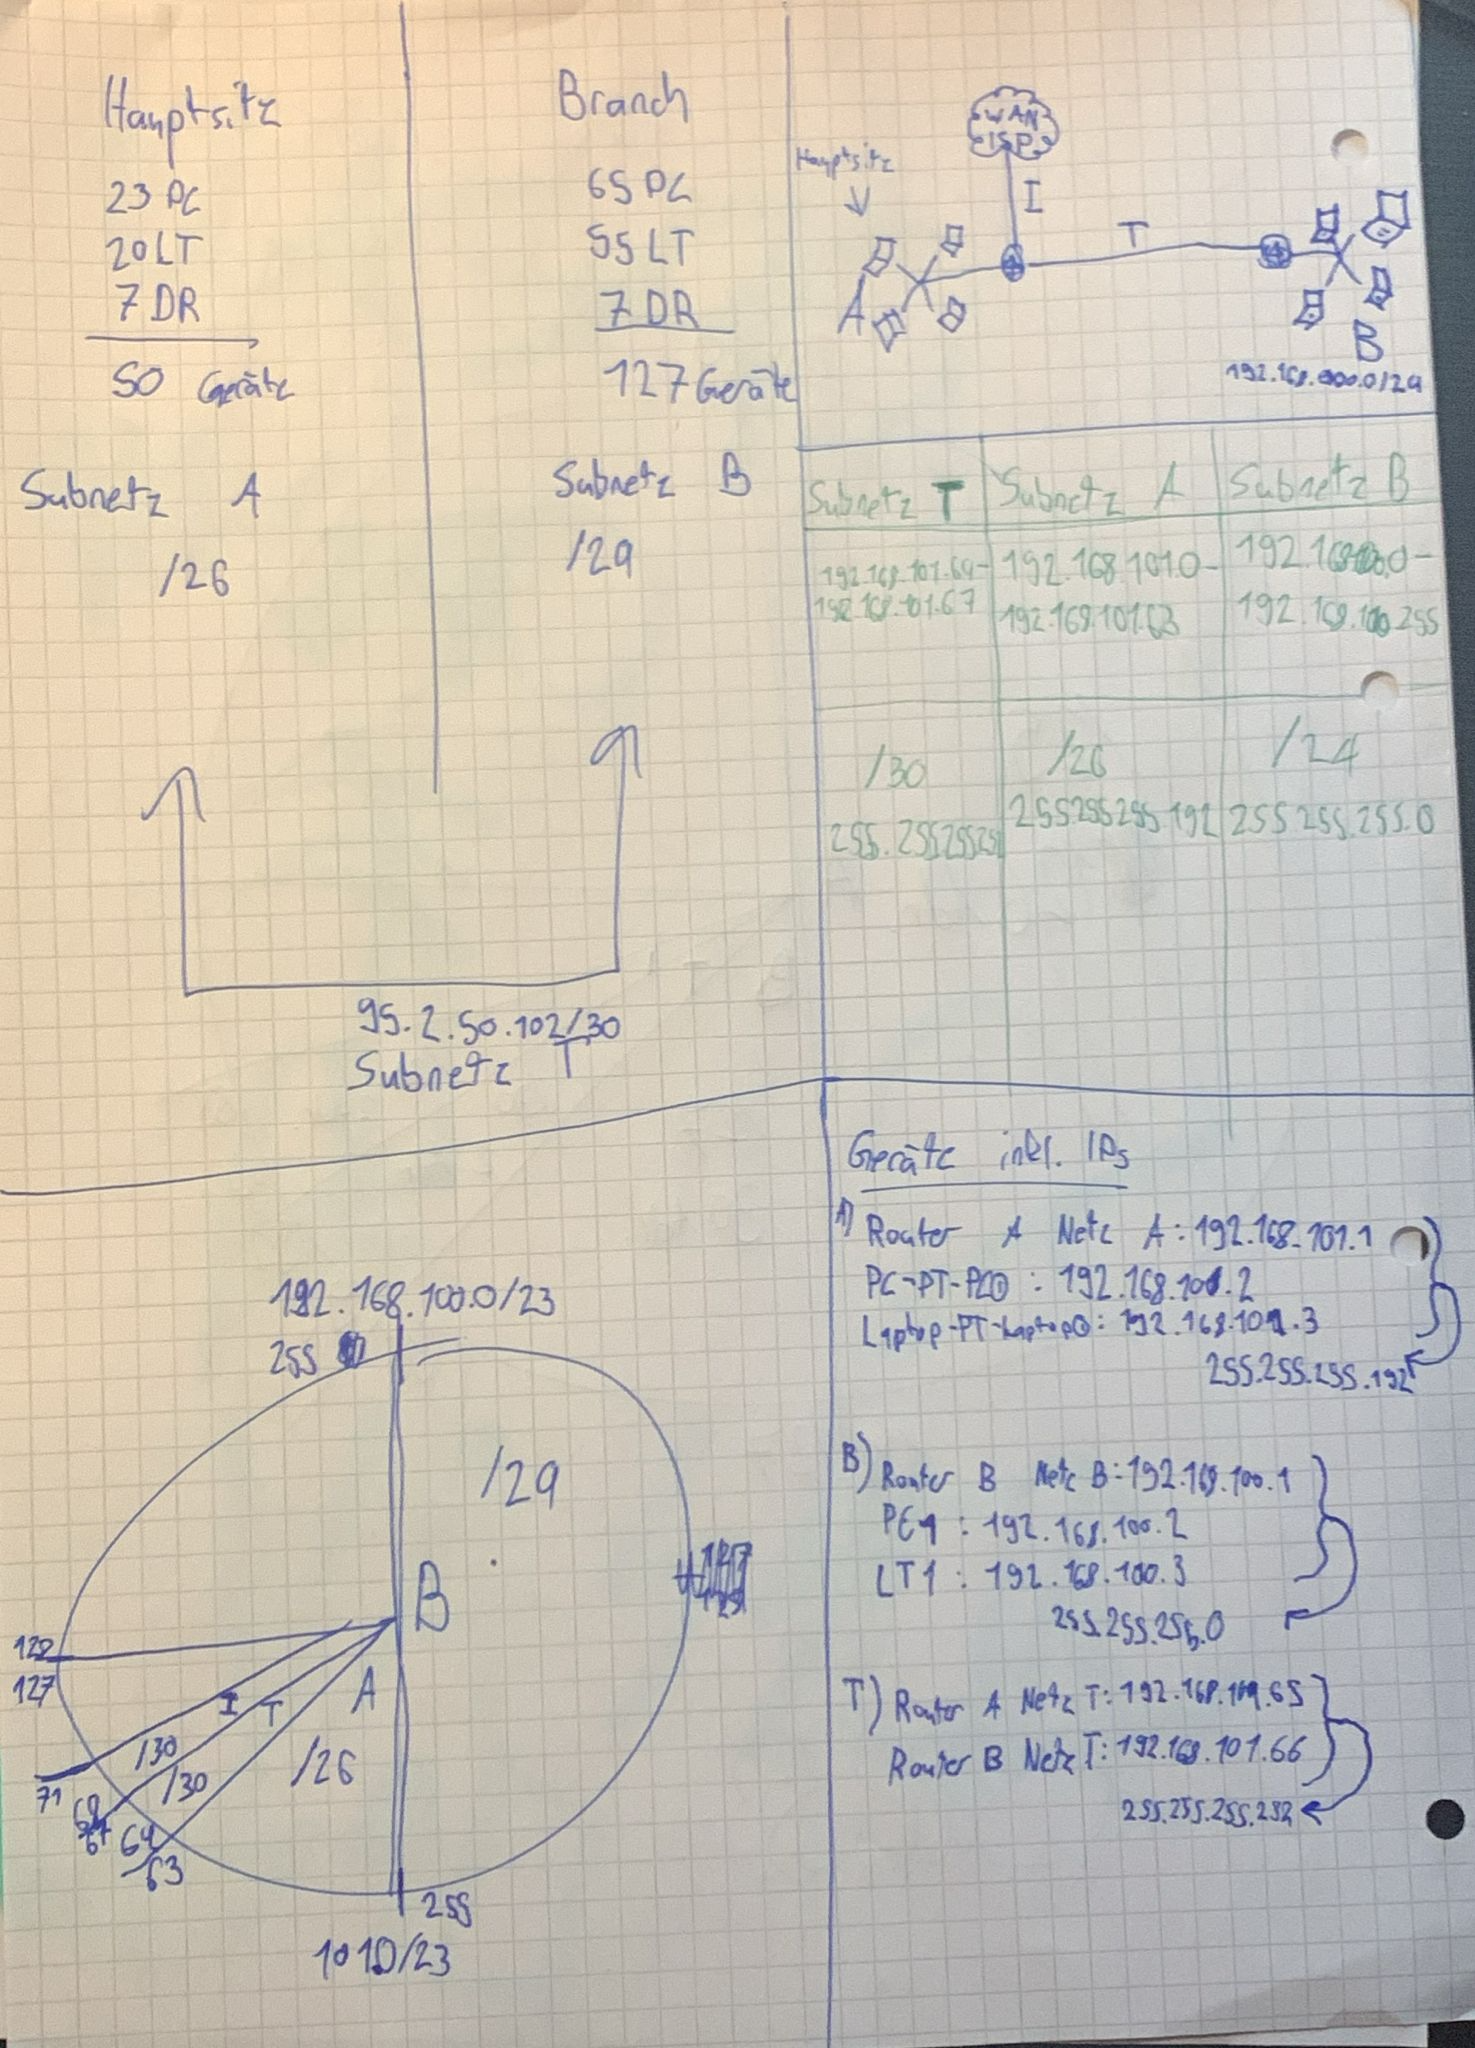 Hauptsitz
23 PC
20 LT
7 DR
50 Geräte
Subnetz A
/26
Branch
65 PC
55 LT
7 DR
127 Geräte
Subnetz B
/29
95.2.50.102/30
Subnetz T
WAN
ISP
Hauptsitz
I
T
A
B
Subnetz T
192.168.101.64-
192.168.101.67
/30
Subnetz A
192.168.101.0-
192.168.101.63
/26
255 255 255 192
Subnetz B
192.168.100.0-
192.168.100.255
/24
255 255.255.0
192.168.100.0/23
255
/29
B
128
127
I
T
A
/30
/30
/26
71
68
67
64
63
255
101.0/23
Geräte inkl. IPs
A) Router A Netz A: 192.168.101.1
PC-PT-PC0 : 192.168.101.2
Laptop-PT-Laptop0: 192.168.101.3
255.255.255.192
B) Router B Netz B: 192.168.100.1
PC1 : 192.168.100.2
LT1 : 192.168.100.3
255.255.255.0
T) Router A Netz T: 192.168.101.65
Router B Netz T: 192.168.101.66
255.255.255.252